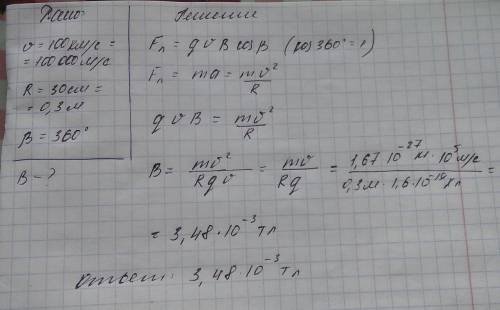 Дано
v = 100 км/с =
= 100 000 м/с
R = 30 см =
= 0,3 м
β = 360°
B - ?
Решение
Fл = q v B cos β (cos 360° = 1)
Fл = ma = mv²/R
q v B = mv²/R
B = mv²/Rqv = mv/Rq = 1,67·10⁻²⁷ кг · 10⁵ м/с / 0,3 м · 1,6·10⁻¹⁹ Кл =
= 3,48·10⁻³ Тл
Ответ: 3,48·10⁻³ Тл